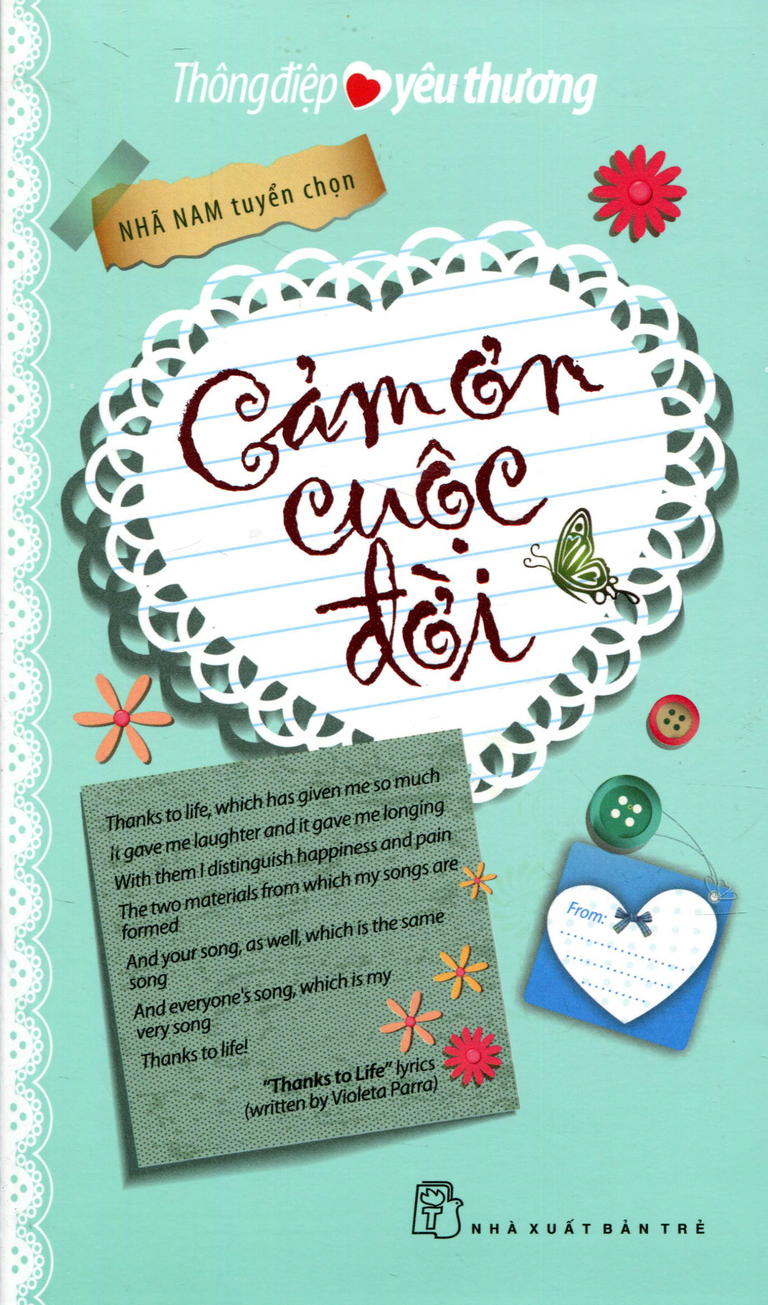 Thông điệp yêu thương
NHÃ NAM tuyển chọn
Cảm ơn
cuộc
đời
Thanks to life, which has given me so much
It gave me laughter and it gave me longing
With them I distinguish happiness and pain
The two materials from which my songs are
formed
And your song, as well, which is the same
song
And everyone's song, which is my
very song
Thanks to life!
"Thanks to Life" lyrics
(written by Violeta Parra)
From:
T
NHÀ XUẤT BẢN TRẺ